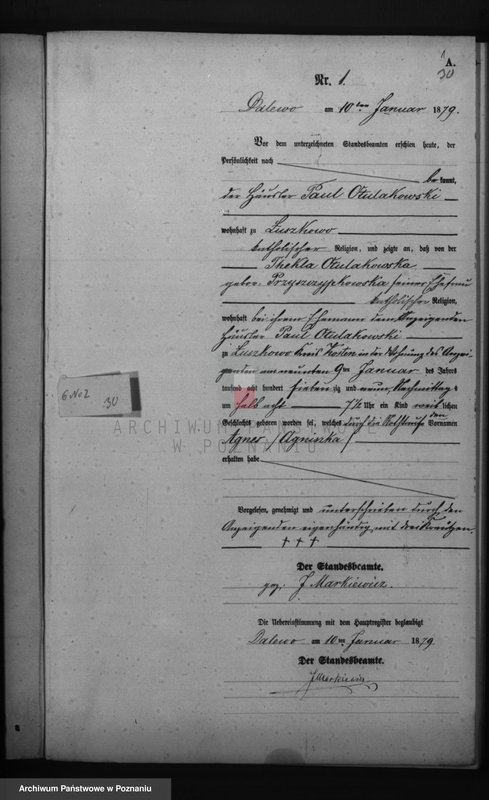 A.
30
Nr. 1.
Dalewo am 10ten Januar 1879.
Vor dem unterzeichneten Standesbeamten erschien heute, der
Persönlichkeit nach
bekannt,
der Häusler Paul Otulakowski
wohnhaft zu Luszkowo
katholischer Religion, und zeigte an, daß von der
Thekla Otulakowska
gebor. Przyszczypkowska seiner Ehefrau
katholischer Religion,
wohnhaft bei ihrem Ehemann dem Anzeigenden
Häusler Paul Otulakowski
zu Luszkowo Kreis Kosten in der Wohnung des Anzei-
genden am neunten 9ten Januar des Jahrs
tausend acht hundert siebenzig und neun, Nachmittags
um halb acht 7½ Uhr ein Kind weiblichen
Geschlechts geboren worden sei, welches durch die Nothtaufe den Vornamen
Agnes (Agnieszka)
erhalten habe
Vorgelesen, genehmigt und unterschrieben durch den
Anzeigenden eigenhändig mit drei Kreutzen.
† † †
Der Standesbeamte.
gez. J Markiewicz.
Die Uebereinstimmung mit dem Hauptregister beglaubigt
Dalewo am 10ten Januar 1879
Der Standesbeamte.
J Markiewicz
6 No 2
30
ARCHIWUM PAŃSTWOWE
W POZNANIU
Archiwum Państwowe w Poznaniu